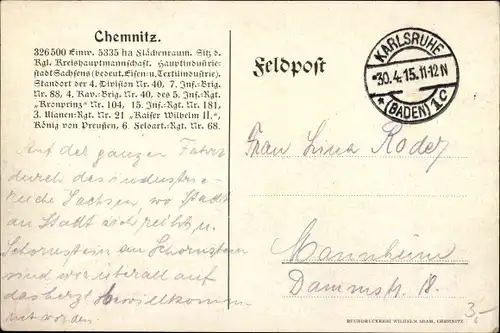 Chemnitz.
326500 Einw. 5335 ha Flächenraum. Sitz d.
Kgl. Kreishauptmannschaft. Hauptindustrie-
stadt Sachsens (bedeut. Eisen- u. Textilindustrie).
Standort der 4. Division Nr. 40, 7. Inf.-Brig.
Nr. 88, 4. Kav.-Brig. Nr. 40, des 5. Inf.-Rgt.
„Kronprinz" Nr. 104, 15. Inf.-Rgt. Nr. 181,
3. Ulanen-Rgt. Nr. 21 „Kaiser Wilhelm II.",
König von Preußen, 6. Feldart.-Rgt. Nr. 68.
Auf der ganzen Fahrt
durch das industrie-
reiche Sachsen, wo Stadt
an Stadt sich reiht u.
Schornstein an Schornstein
sind wir überall auf
das herzl. bewillkomm
net worden.
Feldpost
KARLSRUHE
30.4.15.11-12N
* (BADEN) 1c
Frau Lina Roder
Mannheim
Dammstr. 18.
BUCHDRUCKEREI WILHELM ADAM, CHEMNITZ
3,-